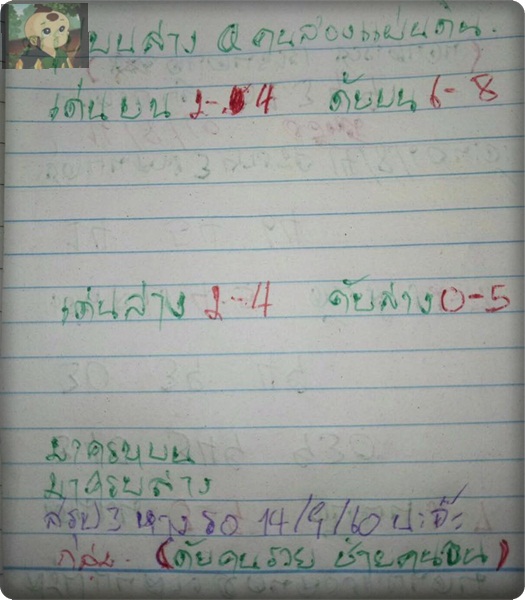 บนล่าง @ คนสองแผ่นดิน.
เด่นบน 2-4 ดับบน 6-8
เด่นล่าง 2-4 ดับล่าง 0-5
มาครบบน
มาครบล่าง
สรุป 3 ทาง รอ 14/9/60 น่ะจ๊ะ
(ดับคนรวย ช้ายคนจน)